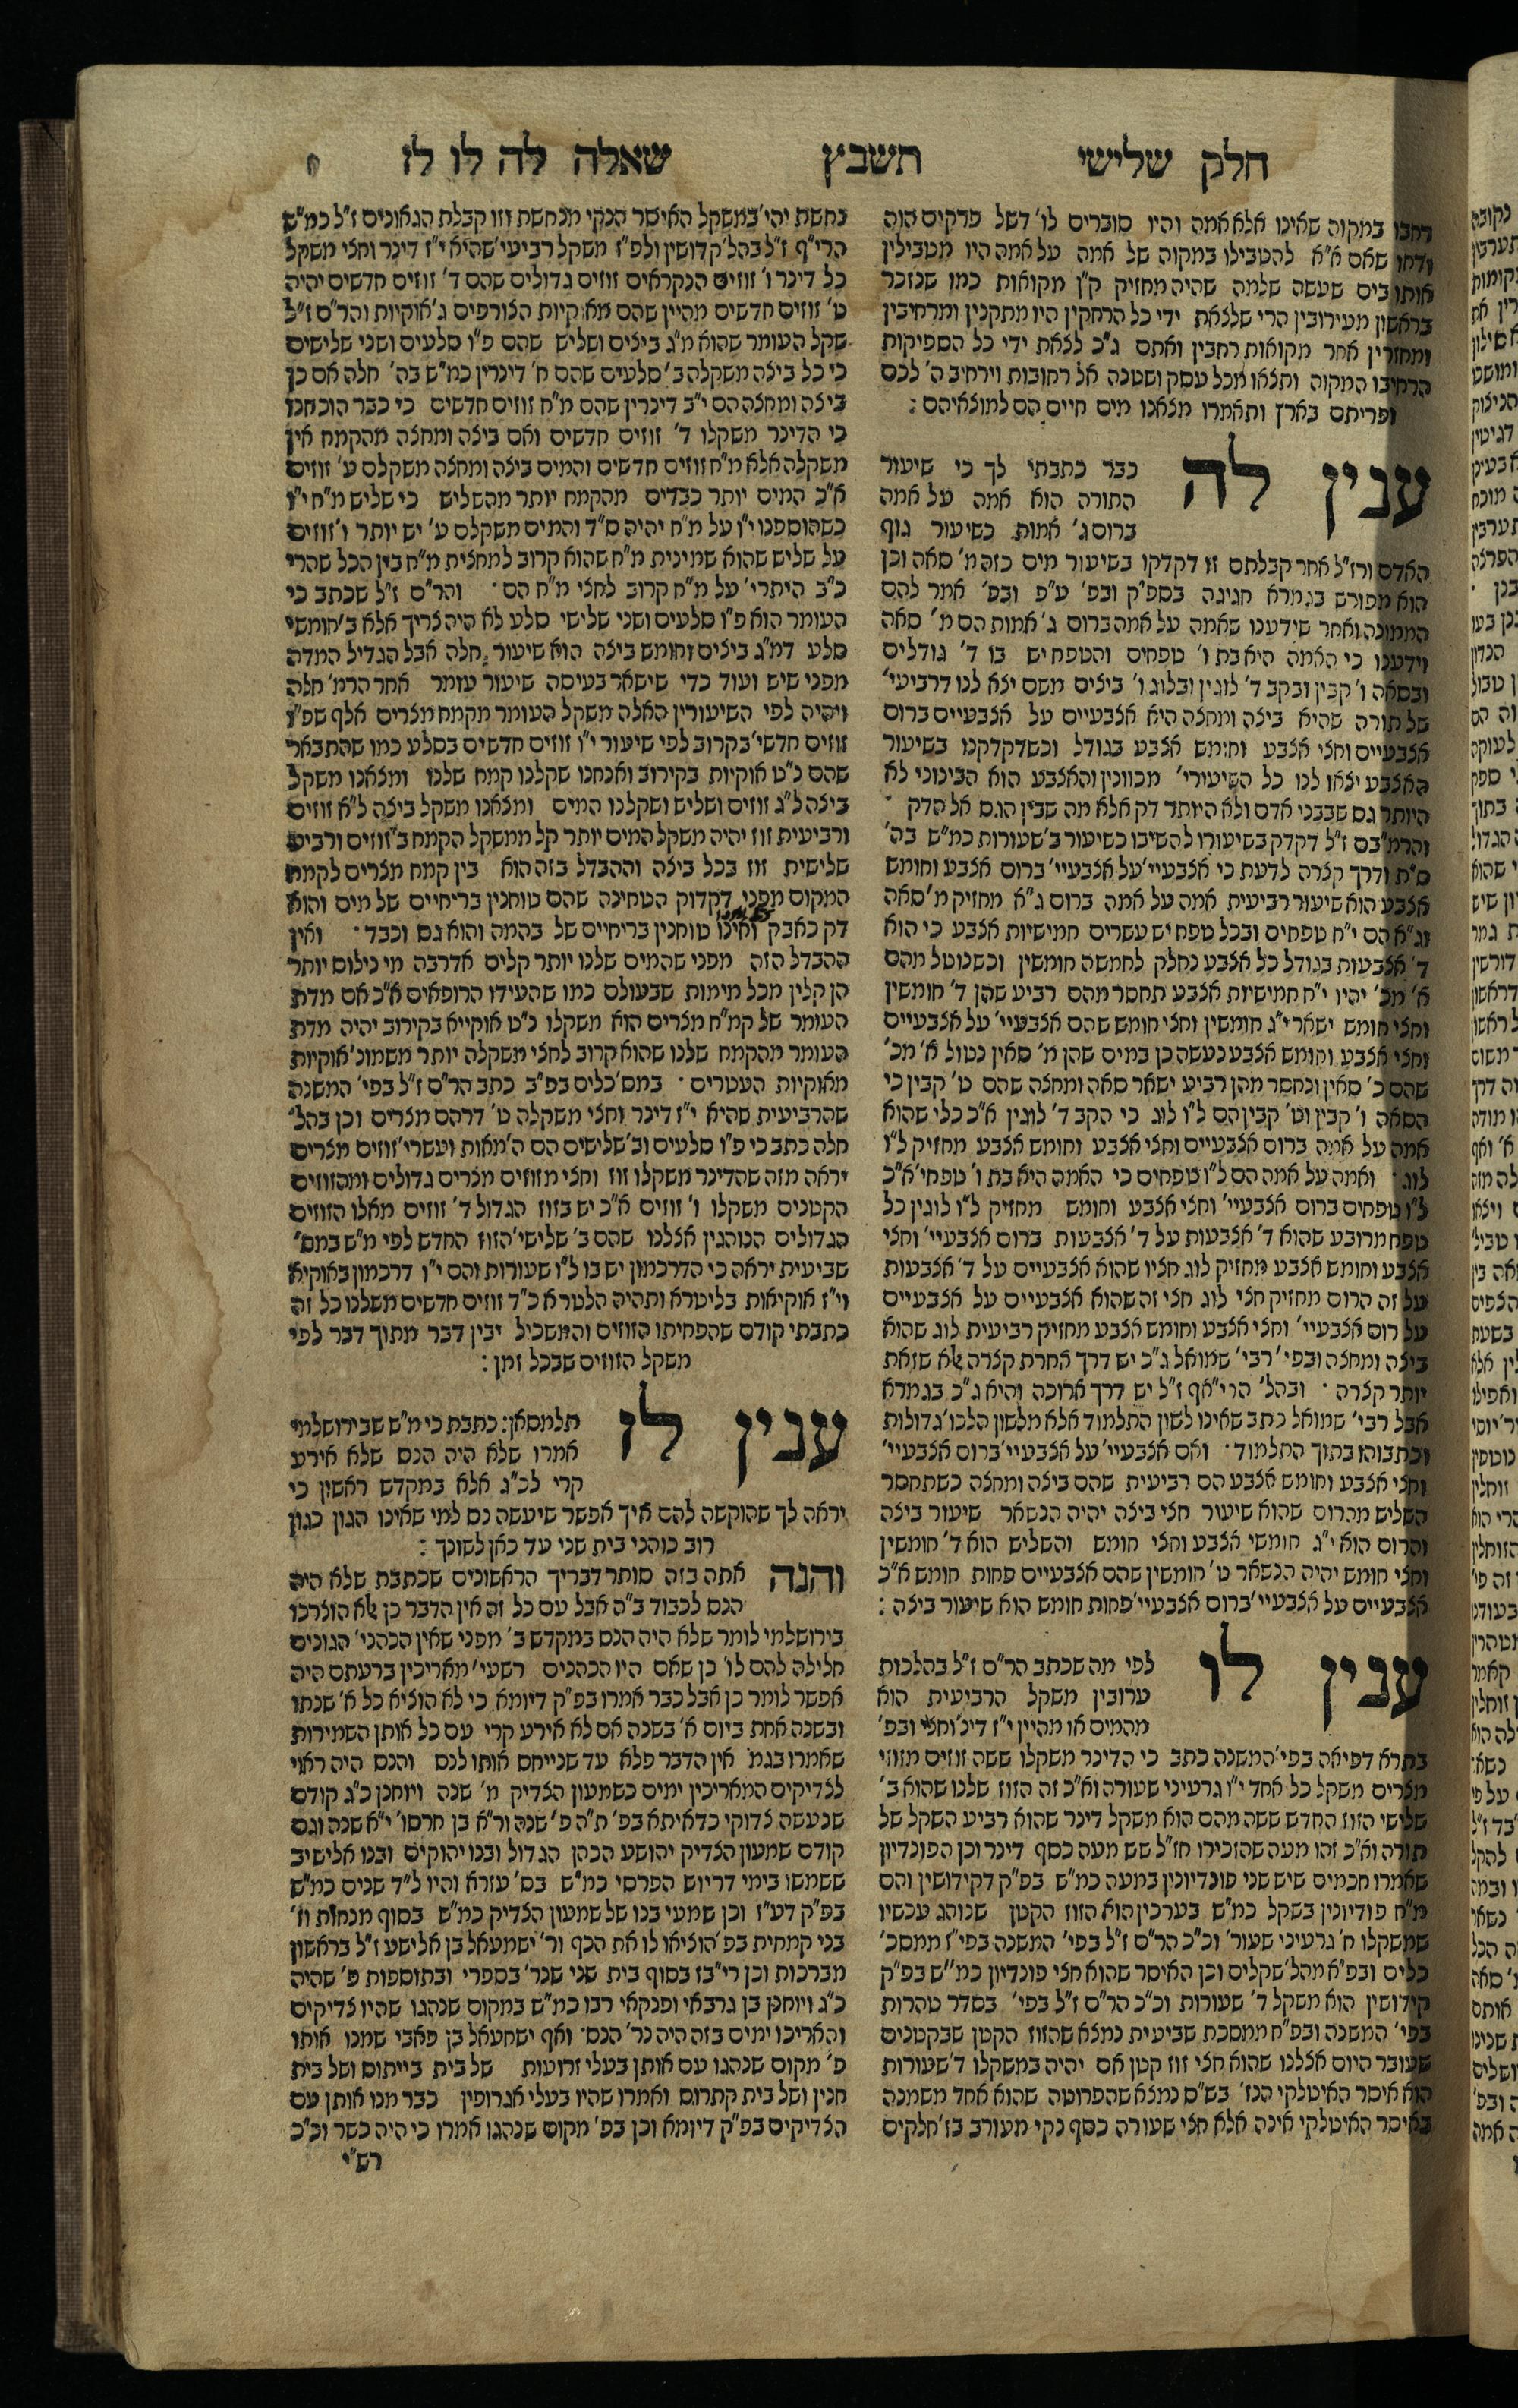 חלק שלישי תשבץ שאלה לה לו לז
רחבו במקוה שאינו אלא אמה והיו סוברים לו' דשל פרקים הוה
ודחו שאם א"א להטבילו במקוה של אמה על אמה היו מטבילין
אותו בים שעשה שלמה שהיה מחזיק ק"ן מקואות כמו שנזכר
בראשון מעירובין הרי שלצאת ידי כל הרחקין היו מתקנין ומרחיבין
ומחזרין אחר מקואות רחבין ואתם ג"כ לצאת ידי כל הספיקות
הרחיבו המקוה ותצאו מכל עסק ושטנה אל רחובות וירחיב ה' לכם
ופריתם בארץ ותאמרו מצאנו מים חיים הם למוצאיהם :
ענין לה כבר כתבתי לך כי שיעור
התורה הוא אמה על אמה
ברום ג' אמות כשיעור גוף
האדם ורז"ל אחר קבלתם זו דקדקו בשיעור מים כזה מ' סאה וכן
הוא מפורש בגמרא חגיגה בספ"ק ובפ' ע"פ ובפ' אמר להם
הממונה ואחר שידענו שאמה על אמה ברום ג' אמות הם מ' סאה
וידענו כי האמה היא בת ו' טפחים והטפח יש בו ד' גודלים
ובסאה ו' קבין ובקב ד' לוגין ובלוג ו' ביצים משם יצא לנו דרביעי'
של תורה שהיא ביצה ומחצה היא אצבעיים על אצבעיים ברום
אצבעיים וחצי אצבע וחומש אצבע בגודל וכשדקדקנו בשיעור
האצבע יצאו לנו כל השיעורי' מכוונין והאצבע הוא הבינוני לא
היותר גם שבבני אדם ולא היותר דק אלא מה שבין הגם אל הדק
והרמ"בם ז"ל דקדק בשיעורו להשיבו כשיעור ב' שעורות כמ"ש בה'
ס"ת ודרך קצרה לדעת כי אצבעיי' על אצבעיי' ברום אצבע וחומש
אצבע הוא שיעור רביעית אמה על אמה ברום ג"א מחזיק מ' סאה
וג"א הם י"ח טפחים ובכל טפח יש עשרים חמישיות אצבע כי הוא
ד' אצבעות בגודל כל אצבע נחלק לחמשה חומשין וכשנוטל מהם
א' מכ' יהיו י"ח חמישיות אצבע תחסר מהם רביע שהן ד' חומשין
וחצי חומש ישאר י"ג חומשין וחצי חומש שהם אצבעיי' על אצבעיים
וחצי אצבע וחומש אצבע נעשה כן במים שהן מ' סאין נטול א' מכ'
שהם כ' סאין ונחסר מהן רביע ישאר סאה ומחצה שהם ט' קבין כי
הסאה ו' קבין וט' קבין הם ל"ו לוג כי הקב ד' לוגין א"כ כלי שהוא
אמה על אמה ברום אצבעיים וחצי אצבע וחומש אצבע מחזיק ל"ו
לוג ואמה על אמה הם ל"ו טפחים כי האמה היא בת ו' טפחי' א"כ
ל"ו טפחים ברום אצבעיי' וחצי אצבע וחומש מחזיק ל"ו לוגין כל
טפח מרובע שהוא ד' אצבעות על ד' אצבעות ברום אצבעיי' וחצי
אצבע וחומש אצבע מחזיק לוג חציו שהוא אצבעיים על ד' אצבעות
על זה הרום מחזיק חצי לוג חצי זה שהוא אצבעיים על אצבעיים
על רום אצבעיי' וחצי אצבע וחומש אצבע מחזיק רביעית לוג שהוא
ביצה ומחצה ובפי' רבי' שמואל ג"כ יש דרך אחרת קצרה אלא שזאת
יותר קצרה ובהל' הרי"אף ז"ל יש דרך ארוכה והיא ג"כ בגמרא
אבל רבי' שמואל כתב שאינו לשון התלמוד אלא מלשון הלכו' גדולות
וכתבוהו בתוך התלמוד ואם אצבעיי' על אצבעיי' ברום אצבעיי'
וחצי אצבע וחומש אצבע הם רביעית שהם ביצה ומחצה כשתחסר
השליש מהרום שהוא שיעור חצי ביצה יהיה הנשאר שיעור ביצה
והרום הוא י"ג חומשי אצבע וחצי חומש והשליש הוא ד' חומשין
וחצי חומש יהיה הנשאר ט' חומשין שהם אצבעיים פחות חומש א"כ
אצבעיים על אצבעיי' ברום אצבעיי' פחות חומש הוא שיעור ביצה :
ענין לו לפי מה שכתב הר"ם ז"ל בהלכות
ערובין משקל הרביעית הוא
מהמים או מהיין י"ז דינ' וחצי ובפ'
בתרא דפיאה בפי' המשנה כתב כי הדינר משקלו ששה זוזים מזוזי
מצרים משקל כל אחד י"ו גרעיני שעורה וא"כ זה הזוז שלנו שהוא ב'
שלישי הזוז החדש ששה מהם הוא משקל דינר שהוא רביע השקל של
תורה וא"כ זהו מעה שהזכירו חז"ל שש מעה כסף דינר וכן הפונדיון
שאמרו חכמים שיש שני פונדיונין במעה כמ"ש בפ"ק דקידושין והם
מ"ח פודיונין בשקל כמ"ש בערכין הוא הזוז הקטן שנוהג עכשיו
שמשקלו ח' גרעיני שעור' וכ"כ הר"ם ז"ל בפי' המשנה בפי"ז ממסכ'
כלים ובפ"א מהל' שקלים וכן האיסר שהוא חצי פונדיון כמ"ש בפ"ק
קידושין הוא משקל ד' שעורות וכ"כ הר"ם ז"ל בפי' בסדר טהרות
בפי' המשנה ובפ"ח ממסכת שביעית נמצא שהזוז הקטן שבקטנים
שעובר היום אצלנו שהוא חצי זוז קטן אם יהיה במשקלו ד' שעורות
הוא איסר האיטלקי הנז' בש"ם נמצא שהפרוטה שהוא אחד משמנה
באיסר האיטלקי אינה אלא חצי שעורה כסף נקי מעורב בז' חלקים
נחשת יהי' במשקל האיסר הנקי מנחשת וזו קבלת הגאונים ז"ל כמ"ש
הרי"ף ז"ל בהל' קדושין ולפ"ז משקל רביעי' שהיא י"ז דינר וחצי משקל
כל דינר ו' זוזים הנקראים זוזים גדולים שהם ד' זוזים חדשים יהיה
ט' זוזים חדשים מהיין שהם מאוקיות הצורפים ג' אוקיות והר"ם ז"ל
שקל העומר שהוא מ"ג ביצים ושליש שהם פ"ו סלעים ושני שלישים
כי כל ביצה משקלה ב' סלעים שהם ח' דינרין כמ"ש בה' חלה אם כן
ביצה ומחצה הם י"ב דינרין שהם מ"ח זוזים חדשים כי כבר הוכחנו
כי הדינר משקלו ד' זוזים חדשים ואם ביצה ומחצה מהקמח אין
משקלה אלא מ"ח זוזים חדשים והמים ביצה ומחצה משקלם ע' זוזים
א"כ המים יותר כבדים מהקמח יותר מהשליש כי שליש מ"ח י"ו
כשהוספנו י"ו על מ"ח יהיה ס"ד והמים משקלם ע' יש יותר ו' זוזים
על שליש שהוא שמינית מ"ח שהוא קרוב למחצית מ"ח בין הכל שהרי
כ"ב היתרי' על מ"ח קרוב לחצי מ"ח הם והר"ם ז"ל שכתב כי
העומר הוא פ"ו סלעים ושני שלישי סלע לא היה צריך אלא ב' חומשי
סלע דמ"ג ביצים וחומש ביצה הוא שיעור חלה אבל הגדיל המדה
מפני שיש ועוד כדי שישאר בעיסה שיעור עומר אחר הרמ' חלה
ויהיה לפי השיעורין האלה משקל העומר מקמח מצרים אלף שפ"ו
זוזים חדשי' בקרוב לפי שיעור י"ו זוזים חדשים בסלע כמו שהתבאר
שהם כ"ט אוקיות בקירוב ואנחנו שקלנו קמח שלנו ומצאנו משקל
ביצה ל"ג זוזים ושליש ושקלנו המים ומצאנו משקל ביצה ל"א זוזים
ורביעית זוז יהיה משקל המים יותר קל ממשקל הקמח ב' זוזים ורביע
שלישית זוז בכל ביצה וההבדל בזה הוא בין קמח מצרים לקמח
המקום מפני דקדוק הטחינה שהם טוחנין בריחיים של מים והוא
דק כאבק ואינו טוחנין בריחיים של בהמה והוא גם וכבד ואין
ההבדל הזה מפני שהמים שלנו יותר קלים אדרבה מי נילוס יותר
הן קלין מכל מימות שבעולם כמו שהעידו הרופאים א"כ אם מדת
העומר של קמ"ח מצרים הוא משקלו כ"ט אוקייא בקירוב יהיה מדת
העומר מהקמח שלנו שהוא קרוב לחצי משקלה יותר משמונ' אוקיות
מאוקיות העטרים במס' כלים בפ"ב כתב הר"ם ז"ל בפי' המשנה
שהרביעית שהיא י"ז דינר וחצי משקלה ט' דרהם מצרים וכן בהל'
חלה כתב כי פ"ו סלעים וב' שלישים הם ה' מאות ועשרי' זוזים מצרים
יראה מזה שהדינר משקלו זוז וחצי מזוזים מצרים גדולים ומהזוזים
הקטנים משקלו ו' זוזים א"כ יש בזוז הגדול ד' זוזים מאלו הזוזים
הגדולים הנוהגין אצלנו שהם ב' שלישי' הזוז החדש לפי מ"ש במס'
שביעית יראה כי הדרכמון יש בו ל"ו שעורות והם י"ו דרכמון באוקיא
וי"ז אוקיאות בליטרא ותהיה הלטרא כ"ד זוזים חדשים משלנו כל זה
כתבתי קודם שהפחיתו הזוזים והמשכיל יבין דבר מתוך דבר לפי
משקל הזוזים שבכל זמן :
ענין לו תלמסאן : כתבת כי מ"ש שבירושלמי
אמרו שלא היה הנס שלא אירע
קרי לכ"ג אלא במקדש ראשון כי
יראה לך שהוקשה להם איך אפשר שיעשה נס למי שאינו הגון כגון
רוב כוהני בית שני עד כאן לשונך :
והנה אתה בזה סותר דבריך הראשונים שכתבת שלא היה
הנס לכבוד ב"ה אבל עם כל זה אין הדבר כן אלא הוצרכו
בירושלמי לומר שלא היה הנס במקדש ב' מפני שאין הכהני' הגונים
חלילה להם לו' כן שאם היו הכהנים רשעי' מאריכין ברעתם היה
אפשר לומר כן אבל כבר אמרו בפ"ק דיומא כי לא הוציא כל א' שנתו
ובשנה אחת ביום א' בשנה אם לא אירע קרי עם כל אותן השמירות
שאמרו בגמ' אין הדבר פלא עד שנייחס אותו לנס והנס היה ראוי
לצדיקים המאריכין ימים כשמעון הצדיק מ' שנה ויוחנן כ"ג קודם
שנעשה צדוקי כדאיתא בפ' ת"ה פ' שנה ור"א בן חרסו' י"א שנה וגם
קודם שמעון הצדיק יהושע הכהן הגדול ובנו יהוקים ובנו אלישיב
ששמשו בימי דריוש הפרסי כמ"ש בס' עזרא והיו ל"ד שנים כמ"ש
בפ"ק דע"ז וכן שמעי בנו של שמעון הצדיק כמ"ש בסוף מנחות וז'
בני קמחית בפ' הוציאו לו את הכף ור' ישמעאל בן אלישע ז"ל בראשון
מברכות וכן רי"בז בסוף בית שני שנר' בספרי ובתוספות פ' שהיה
כ"ג ויוחנן בן גרבאי ופנקאי רבו כמ"ש במקום שנהגו שהיו צדיקים
והאריכו ימים בזה היה נר' הנס ואף ישמעאל בן פאבי שמנו אותו
פ' מקום שנהגו עם אותן בעלי זרועות של בית בייתוס ושל בית
חנין ושל בית קתרוס ואמרו שהיו בעלי אגרופין כבר מנו אותן עם
הצדיקים בפ"ק דיומא וכן בפ' מקום שנהגו אמרו כי היה כשר וכ"כ
רש"י